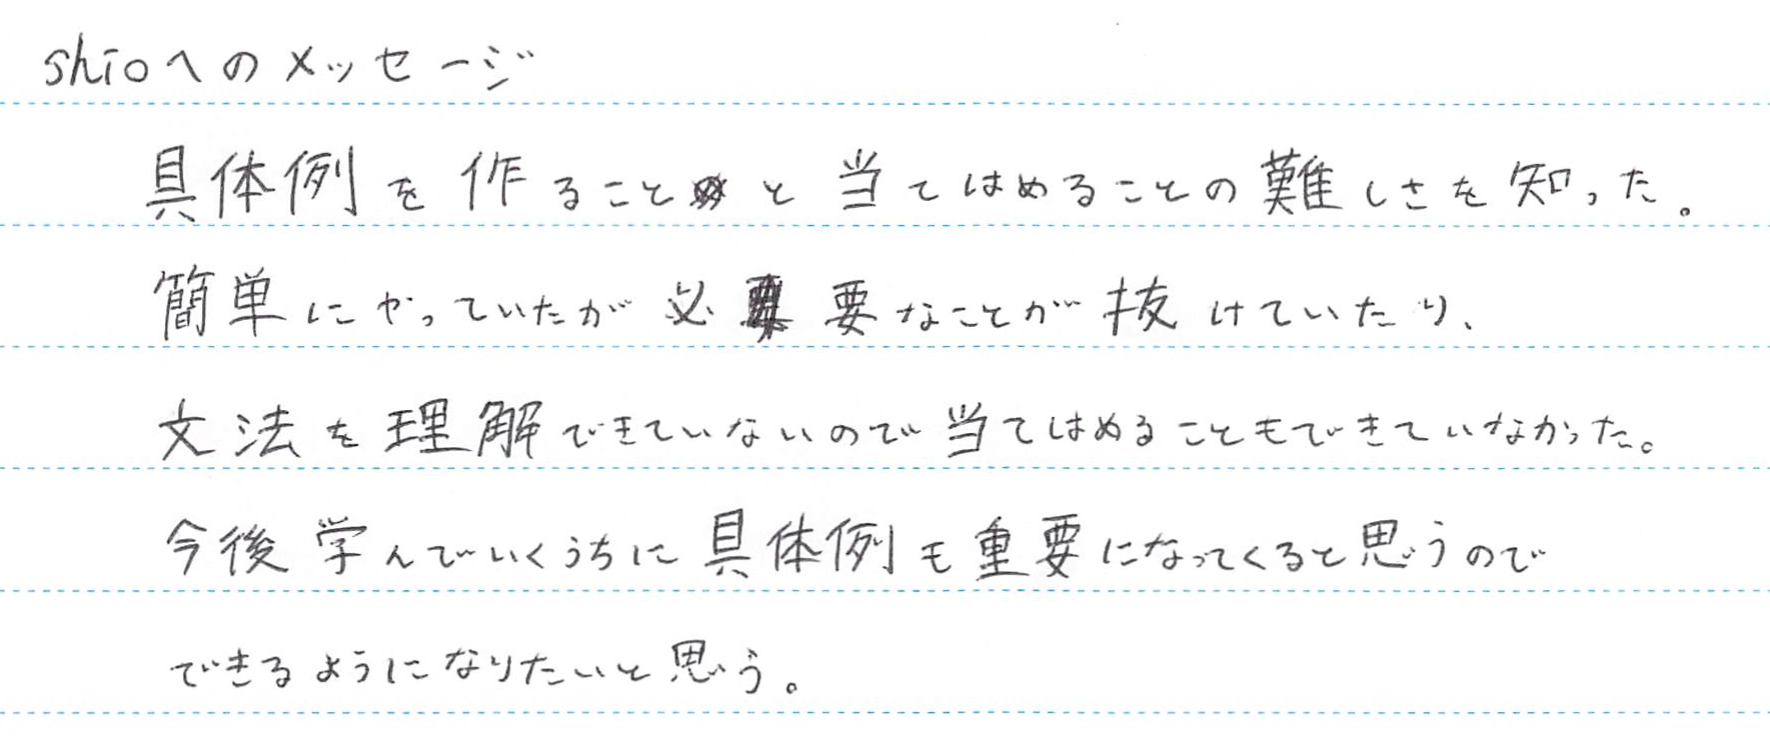 shioへのメッセージ
具体例を作ることと当てはめることの難しさを知った。
簡単にやっていたが必要なことが抜けていたり、
文法を理解できていないので当てはめることもできていなかった。
今後学んでいくうちに具体例も重要になってくると思うので
できるようになりたいと思う。